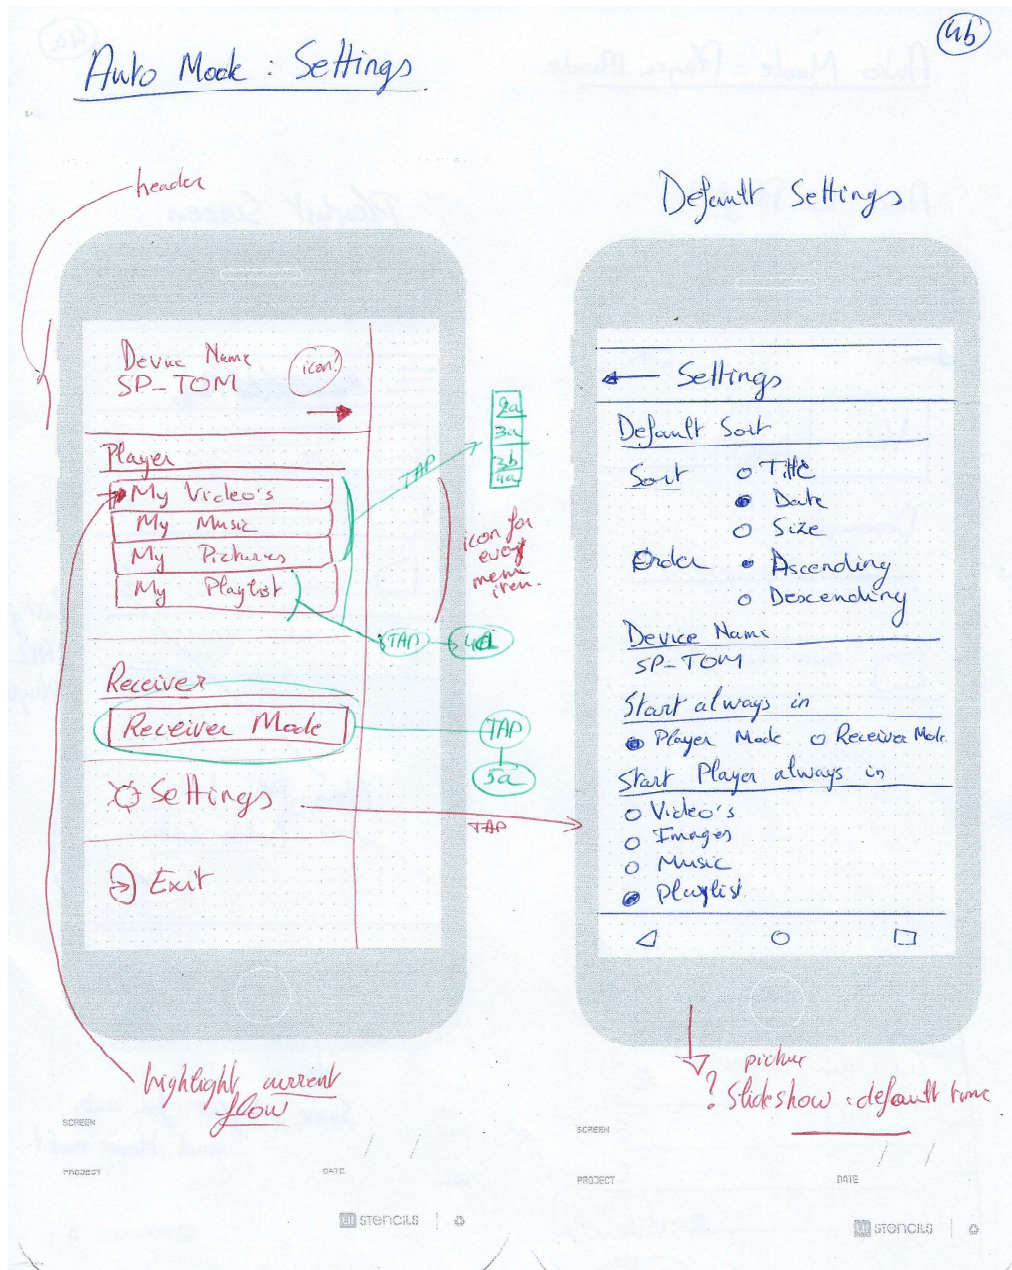 4b
Auto Mode : Settings
header
Default Settings
Device Name
SP-TOM
icon?
Player
My Video's
My Music
My Pictures
My Playlist
TAP
2a
3a
3b
4a
icon for
every
menu
item.
TAP
Receiver
Receiver Mode
TAP
5a
Settings
TAP
Exit
highlight current
flow
Settings
Default Sort
Sort
Title
Date
Size
Order
Ascending
Descending
Device Name
SP-TOM
Start always in
Player Mode
Receiver Mode
Start Player always in
Video's
Images
Music
Playlist
picture
? Slideshow : default time
SCREEN
PROJECT
DATE
UI STENCILS
SCREEN
PROJECT
DATE
UI STENCILS